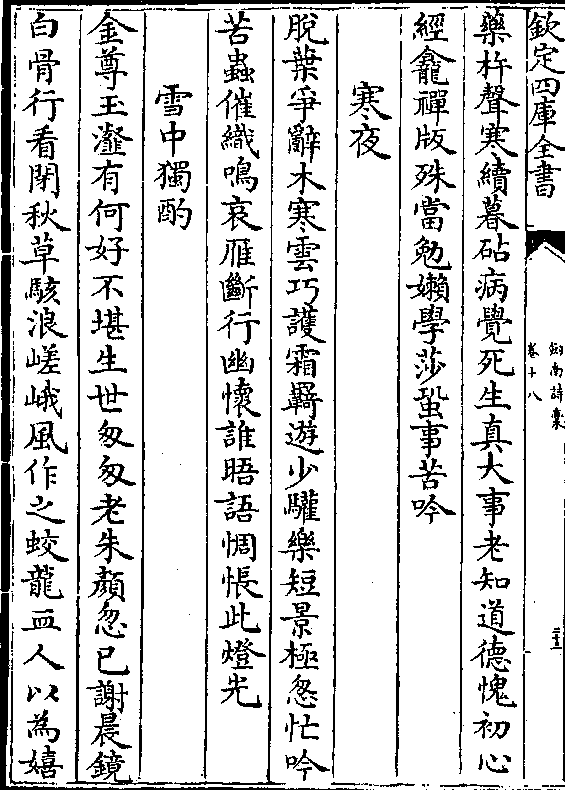 欽定四庫全書
劍南詩稾
卷十八
藥杵聲寒續暮砧病覺死生真大事老知道德愧初心
經龕禪版殊當勉嬾學莎蛩事苦吟
寒夜
脫葉爭辭木寒雲巧護霜羇遊少驩樂短景極怱忙吟
苦蟲催織鳴哀雁斷行幽懷誰晤語惆悵此燈光
雪中獨酌
金尊玉瀣有何好不堪生世匆匆老朱顏忽已謝晨鏡
白骨行看閉秋草駭浪嵯峨風作之蛟龍血人以為嬉